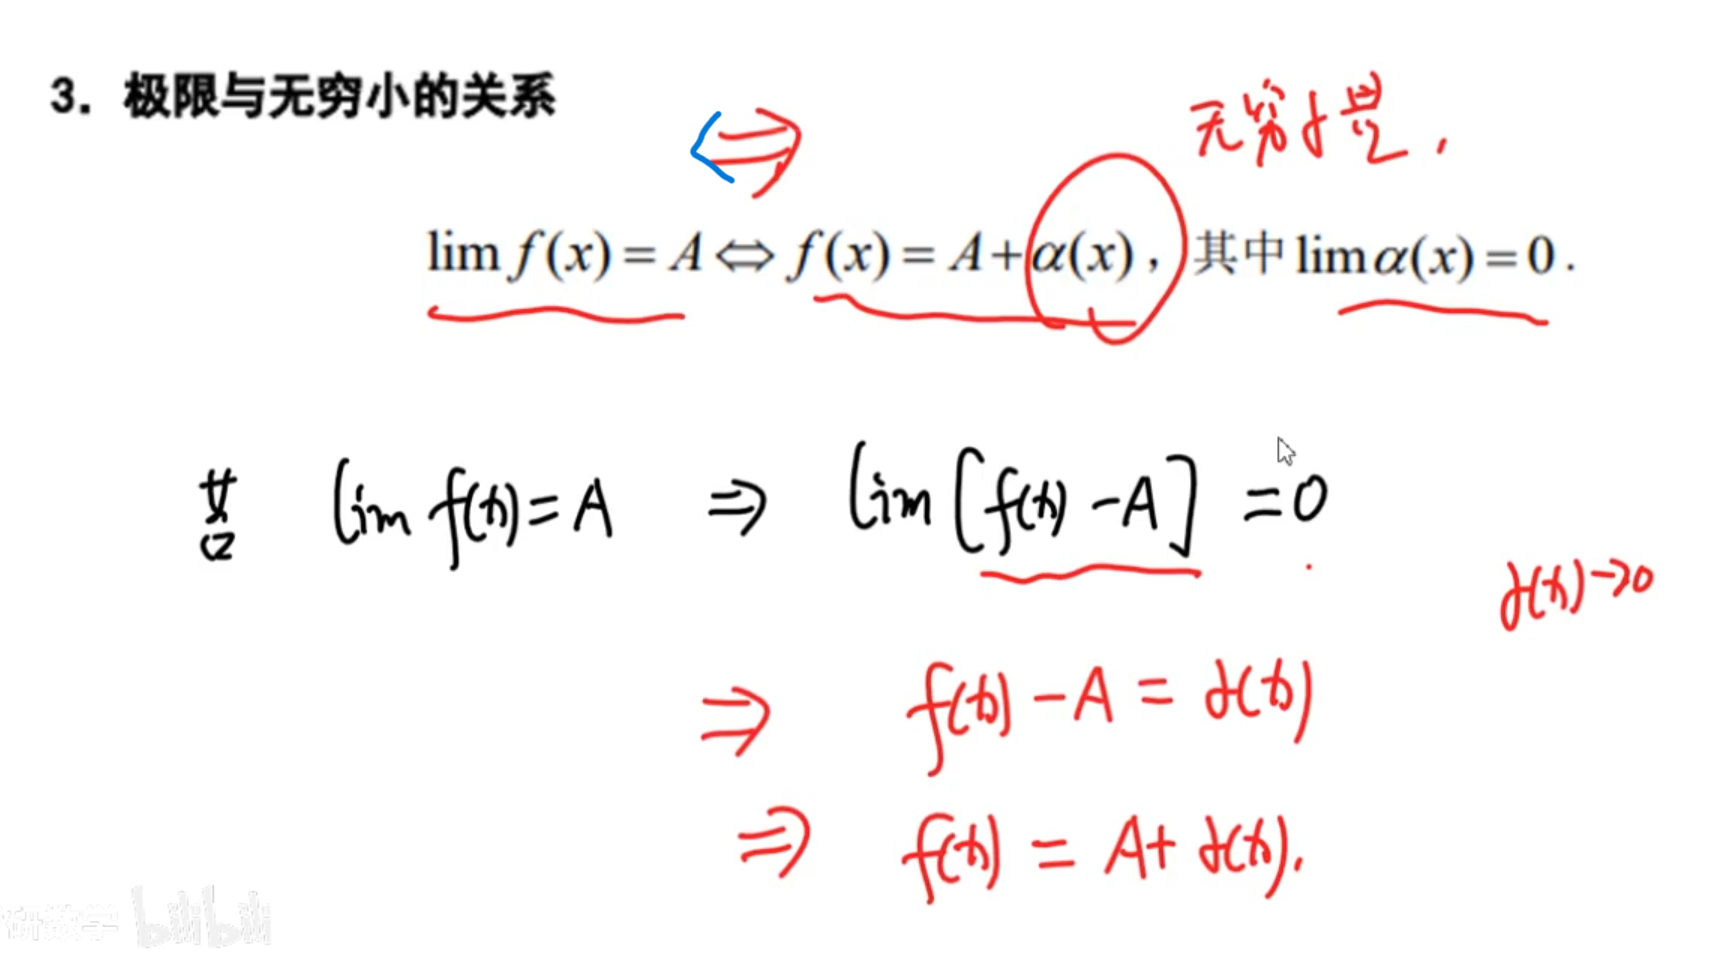 3. 极限与无穷小的关系
无穷小量,
lim f(x) = A ⇔ f(x) = A + α(x), 其中 lim α(x) = 0.
若 lim f(x) = A ⇒ lim [f(x) - A] = 0
α(x) → 0
⇒ f(x) - A = α(x)
⇒ f(x) = A + α(x).
研数学 bilibili